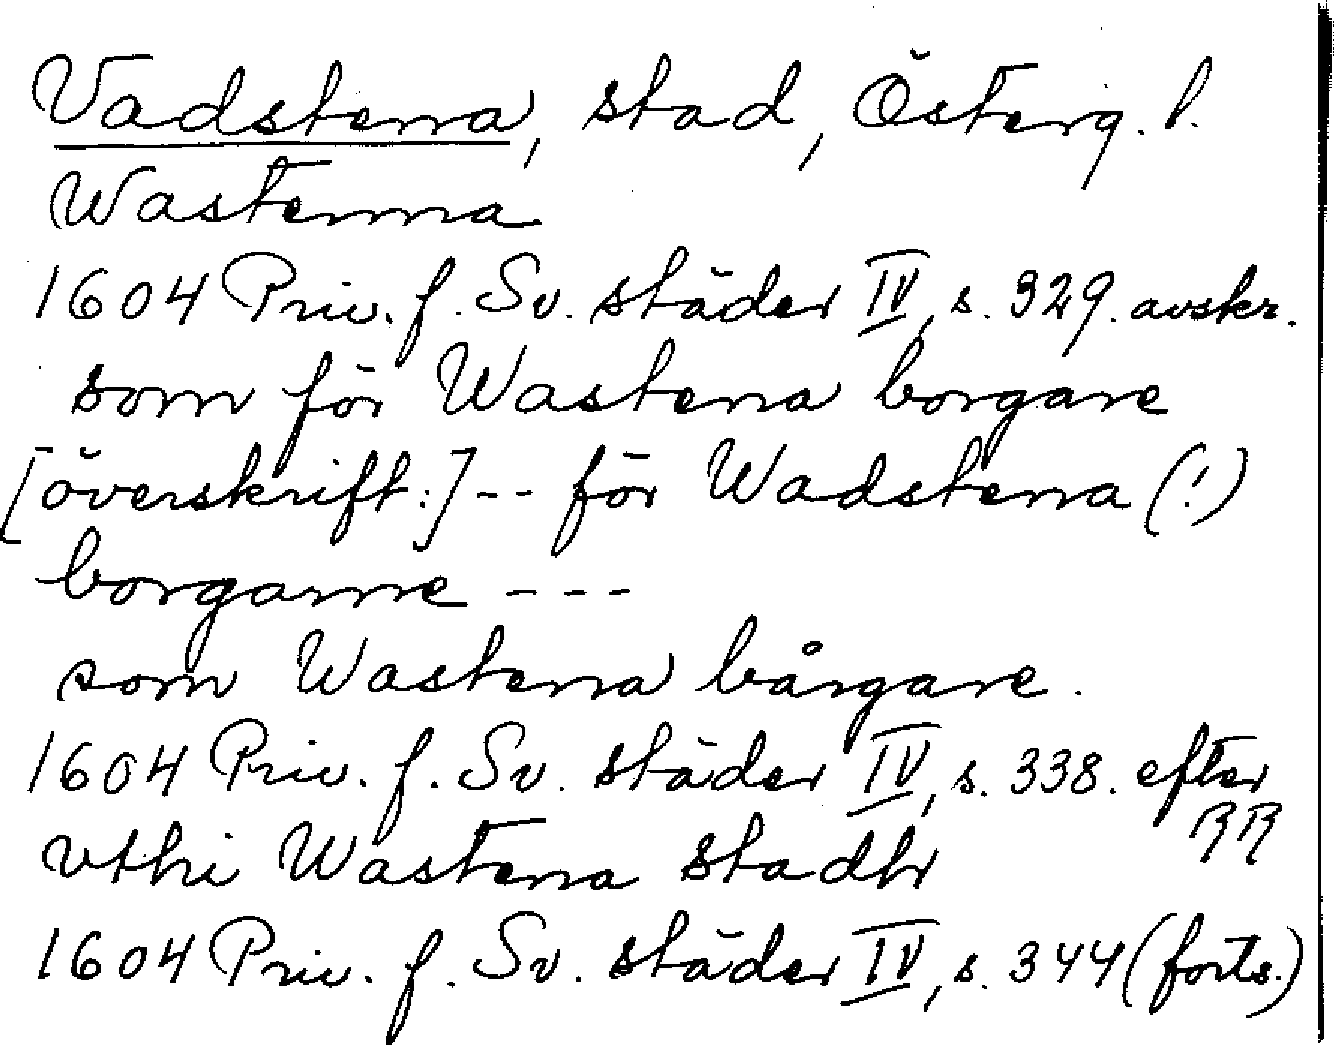 Vadstena, stad, Österg. l.
Wastenna
1604 Priv. f. Sv. städer IV, s. 329. avskr.
som för Wastena borgare
[överskrift:] -- för Wadstena (!)
borgarne ---
som Wastena bårgare.
1604 Priv. f. Sv. städer IV, s. 338. efter RR
vthi Wastena stadh
1604 Priv. f. Sv. städer IV, s. 344 (forts.)